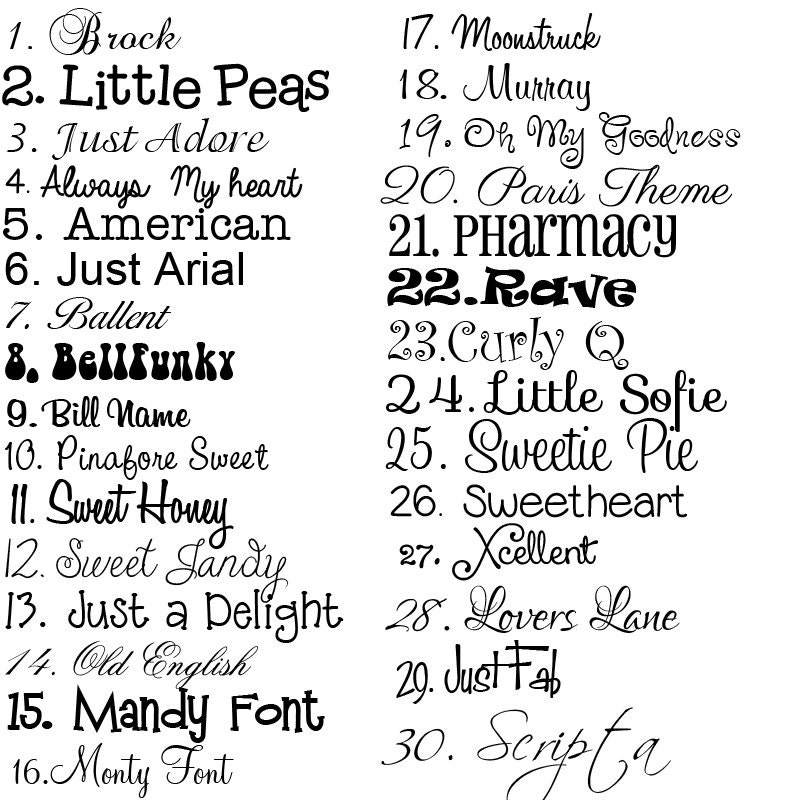 1. Brock
2. Little Peas
3. Just Adore
4. Always My heart
5. American
6. Just Arial
7. Ballent
8. BellFunky
9. Bill Name
10. Pinafore Sweet
11. Sweet Honey
12. Sweet Jandy
13. Just a Delight
14. Old English
15. Mandy Font
16. Monty Font
17. Moonstruck
18. Murray
19. Oh My Goodness
20. Paris Theme
21. PHarmacy
22. Rave
23. Curly Q
24. Little Sofie
25. Sweetie Pie
26. Sweetheart
27. Xcellent
28. Lovers Lane
29. Just Fab
30. Scripta